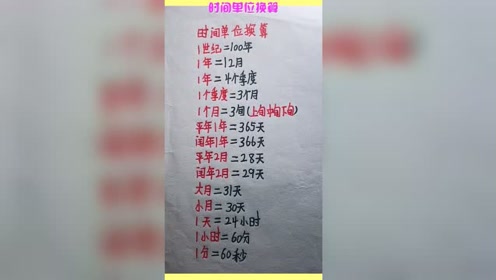 时间单位换算
时间单位换算
1世纪=100年
1年=12月
1年=4个季度
1个季度=3个月
1个月=3旬(上旬中旬下旬)
平年1年=365天
闰年1年=366天
平年2月=28天
闰年2月=29天
大月=31天
小月=30天
1天=24小时
1小时=60分
1分=60秒